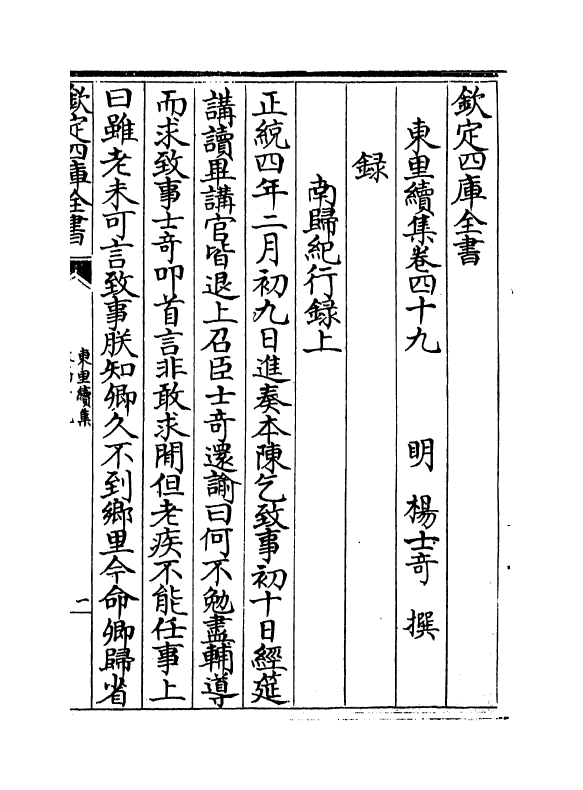 欽定四庫全書
東里續集卷四十九　明　楊士奇　撰
録
南歸紀行録上
正統四年二月初九日進奏本陳乞致事初十日經筵
講讀畢講官皆退上召臣士奇還諭曰何不勉盡輔導
而求致事士奇叩首言非敢求閒但老疾不能任事上
曰雖老未可言致事朕知卿久不到鄉里今命卿歸省
欽定四庫全書
東里續集
一